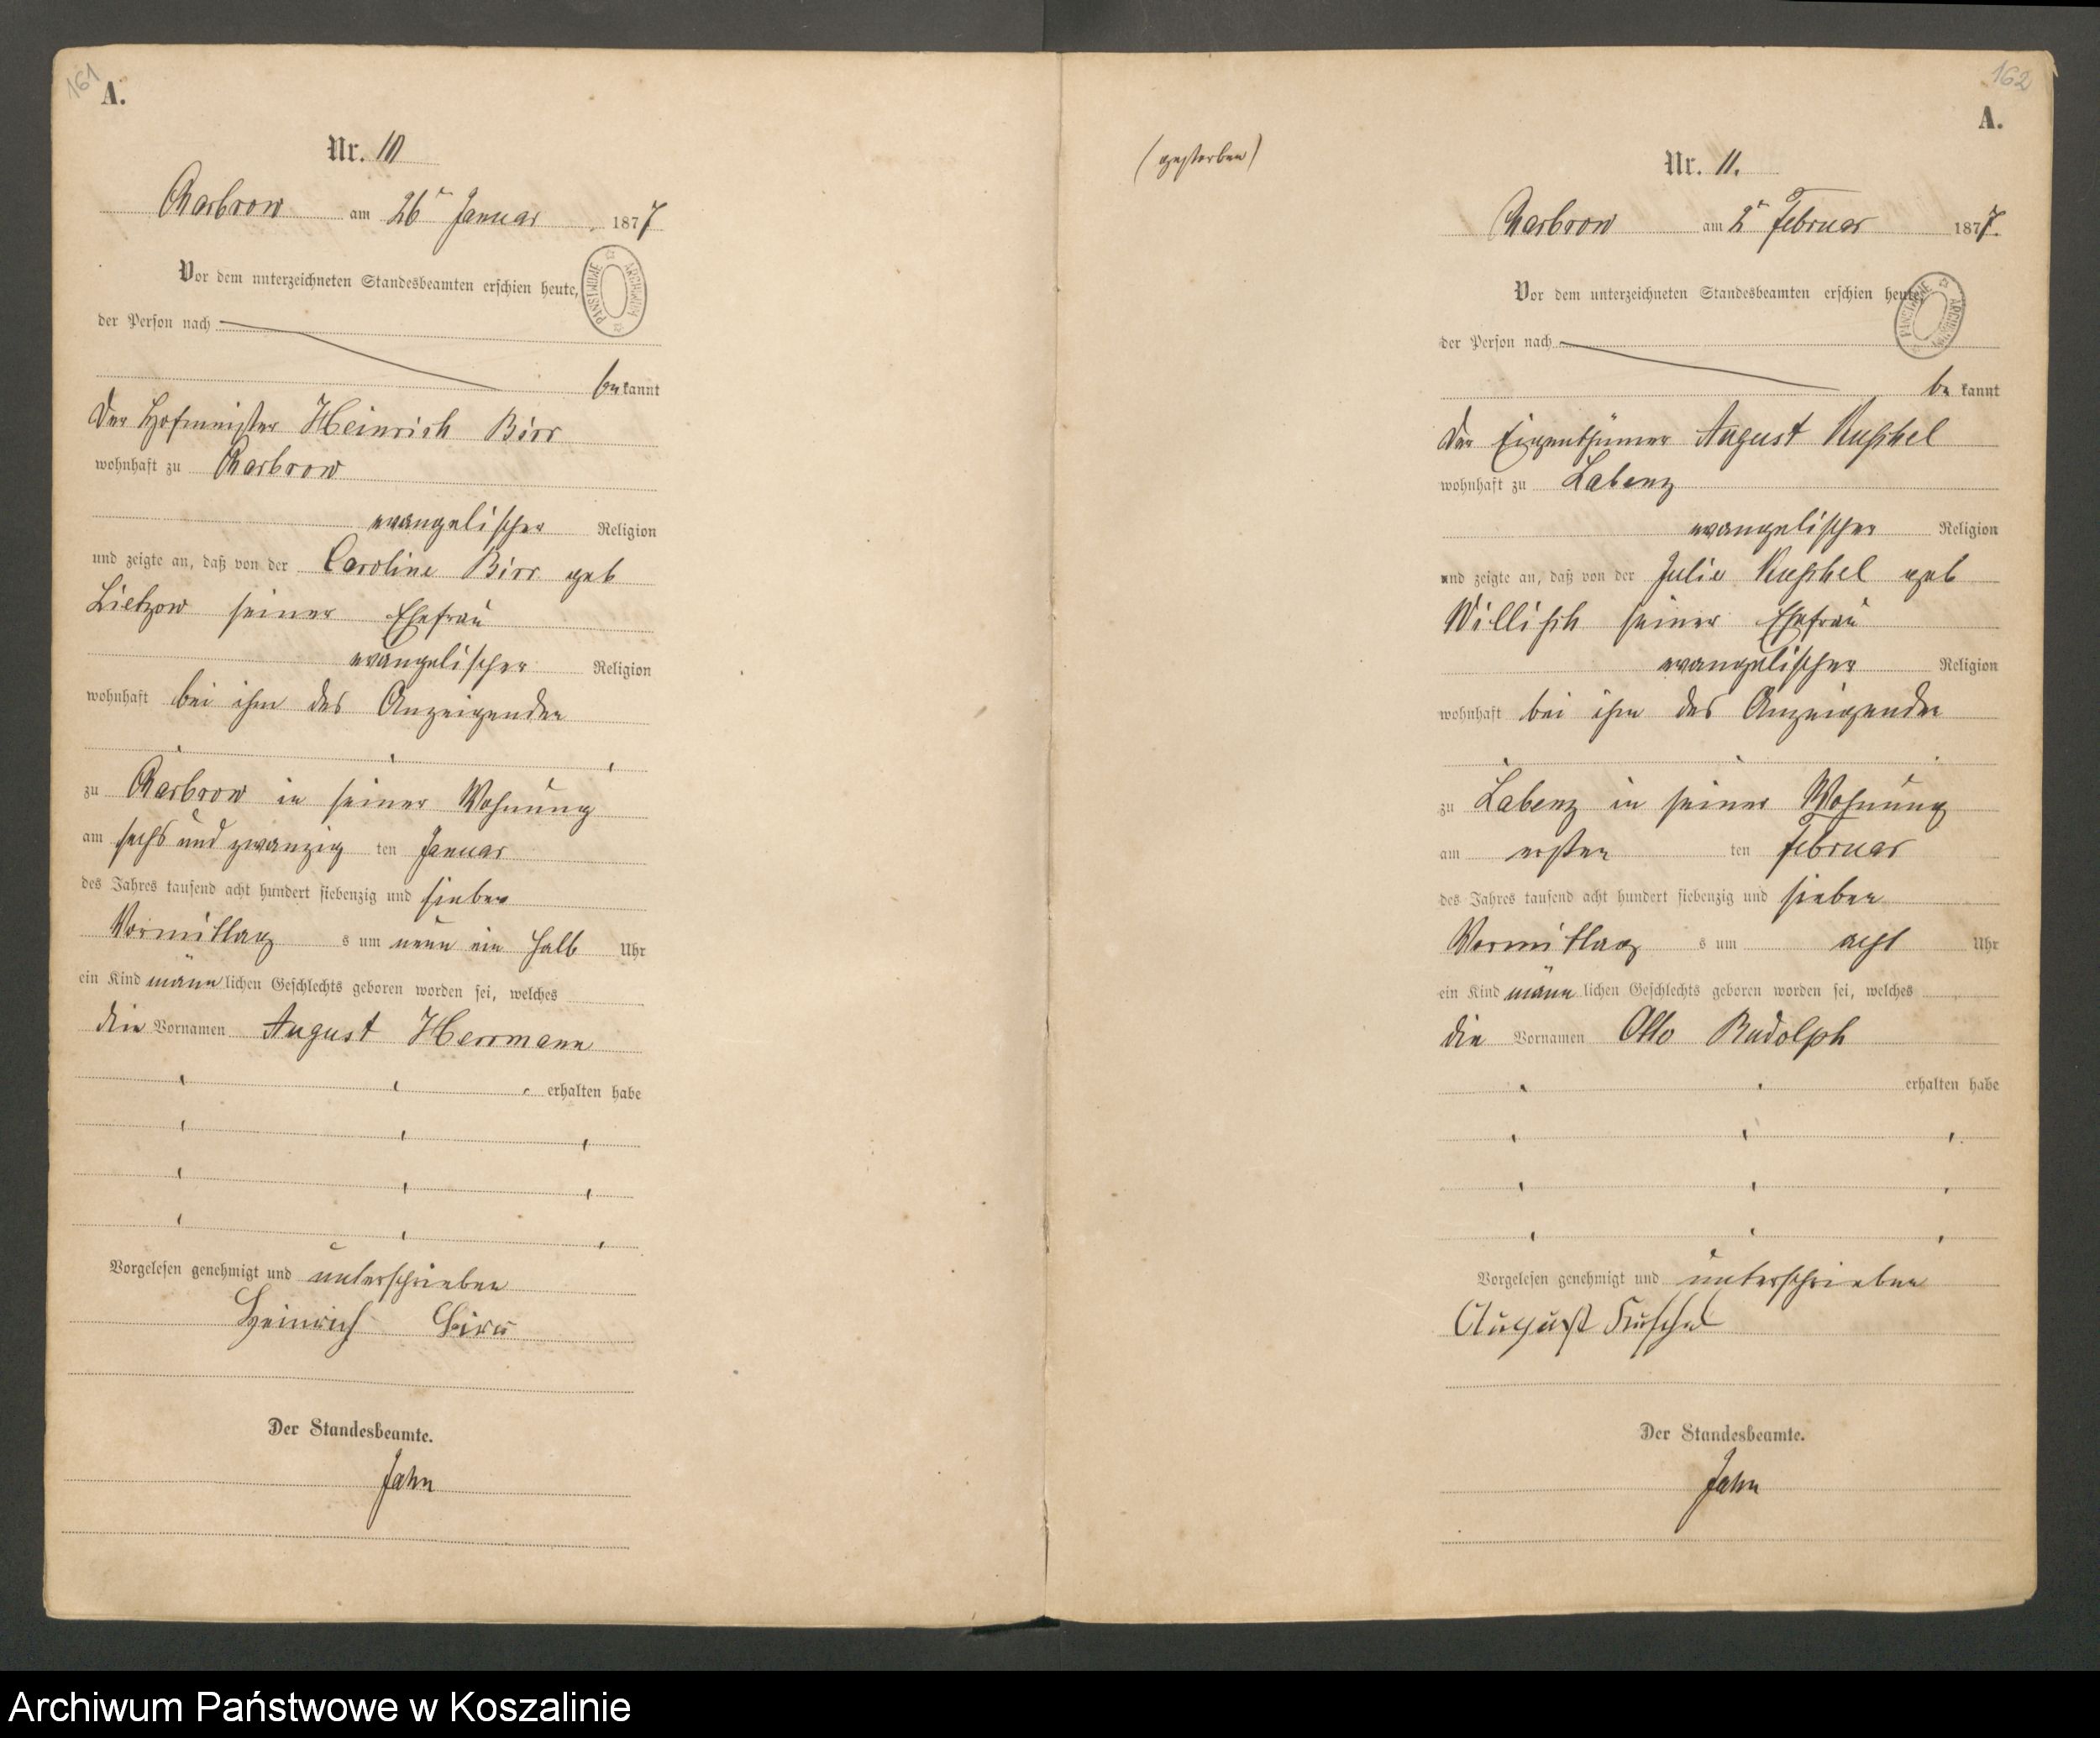 161
A.
Nr. 10
Charbrow am 26t Januar 1877
Vor dem unterzeichneten Standesbeamten erschien heute,
der Person nach
bekannt
der Hofmeister Heinrich Birr
wohnhaft zu Charbrow
evangelischer Religion
und zeigte an, daß von der Caroline Birr geb
Lietzow seiner Ehefrau
evangelischer Religion
wohnhaft bei ihm des Anzeigenden
zu Charbrow in seiner Wohnung
am sechs und zwanzig ten Januar
des Jahres tausend acht hundert siebenzig und sieben
Vormittag s um neun ein halb Uhr
ein Kind männlichen Geschlechts geboren worden sei, welches
die Vornamen August Herrmann
erhalten habe
Vorgelesen genehmigt und unterschrieben
Heinrich Birr
Der Standesbeamte.
Jahn
PANSTWOWE ARCHIWUM
162
A.
(gestorben)
Nr. 11.
Charbrow am 2t Februar 1877.
Vor dem unterzeichneten Standesbeamten erschien heute,
der Person nach
be kannt
der Eigenthümer August Kuschel
wohnhaft zu Labenz
evangelischer Religion
und zeigte an, daß von der Julie Kuschel geb
seiner Ehefrau
evangelischer Religion
wohnhaft bei ihm des Anzeigenden
zu Labenz in seiner Wohnung
am ersten ten Februar
des Jahres tausend acht hundert siebenzig und sieben
Vormittag s um acht Uhr
ein Kind männlichen Geschlechts geboren worden sei, welches
die Vornamen Otto Rudolph
erhalten habe
Vorgelesen genehmigt und unterschrieben
August Kuschel
Der Standesbeamte.
Jahn
PANSTWOWE ARCHIWUM
Archiwum Państwowe w Koszalinie